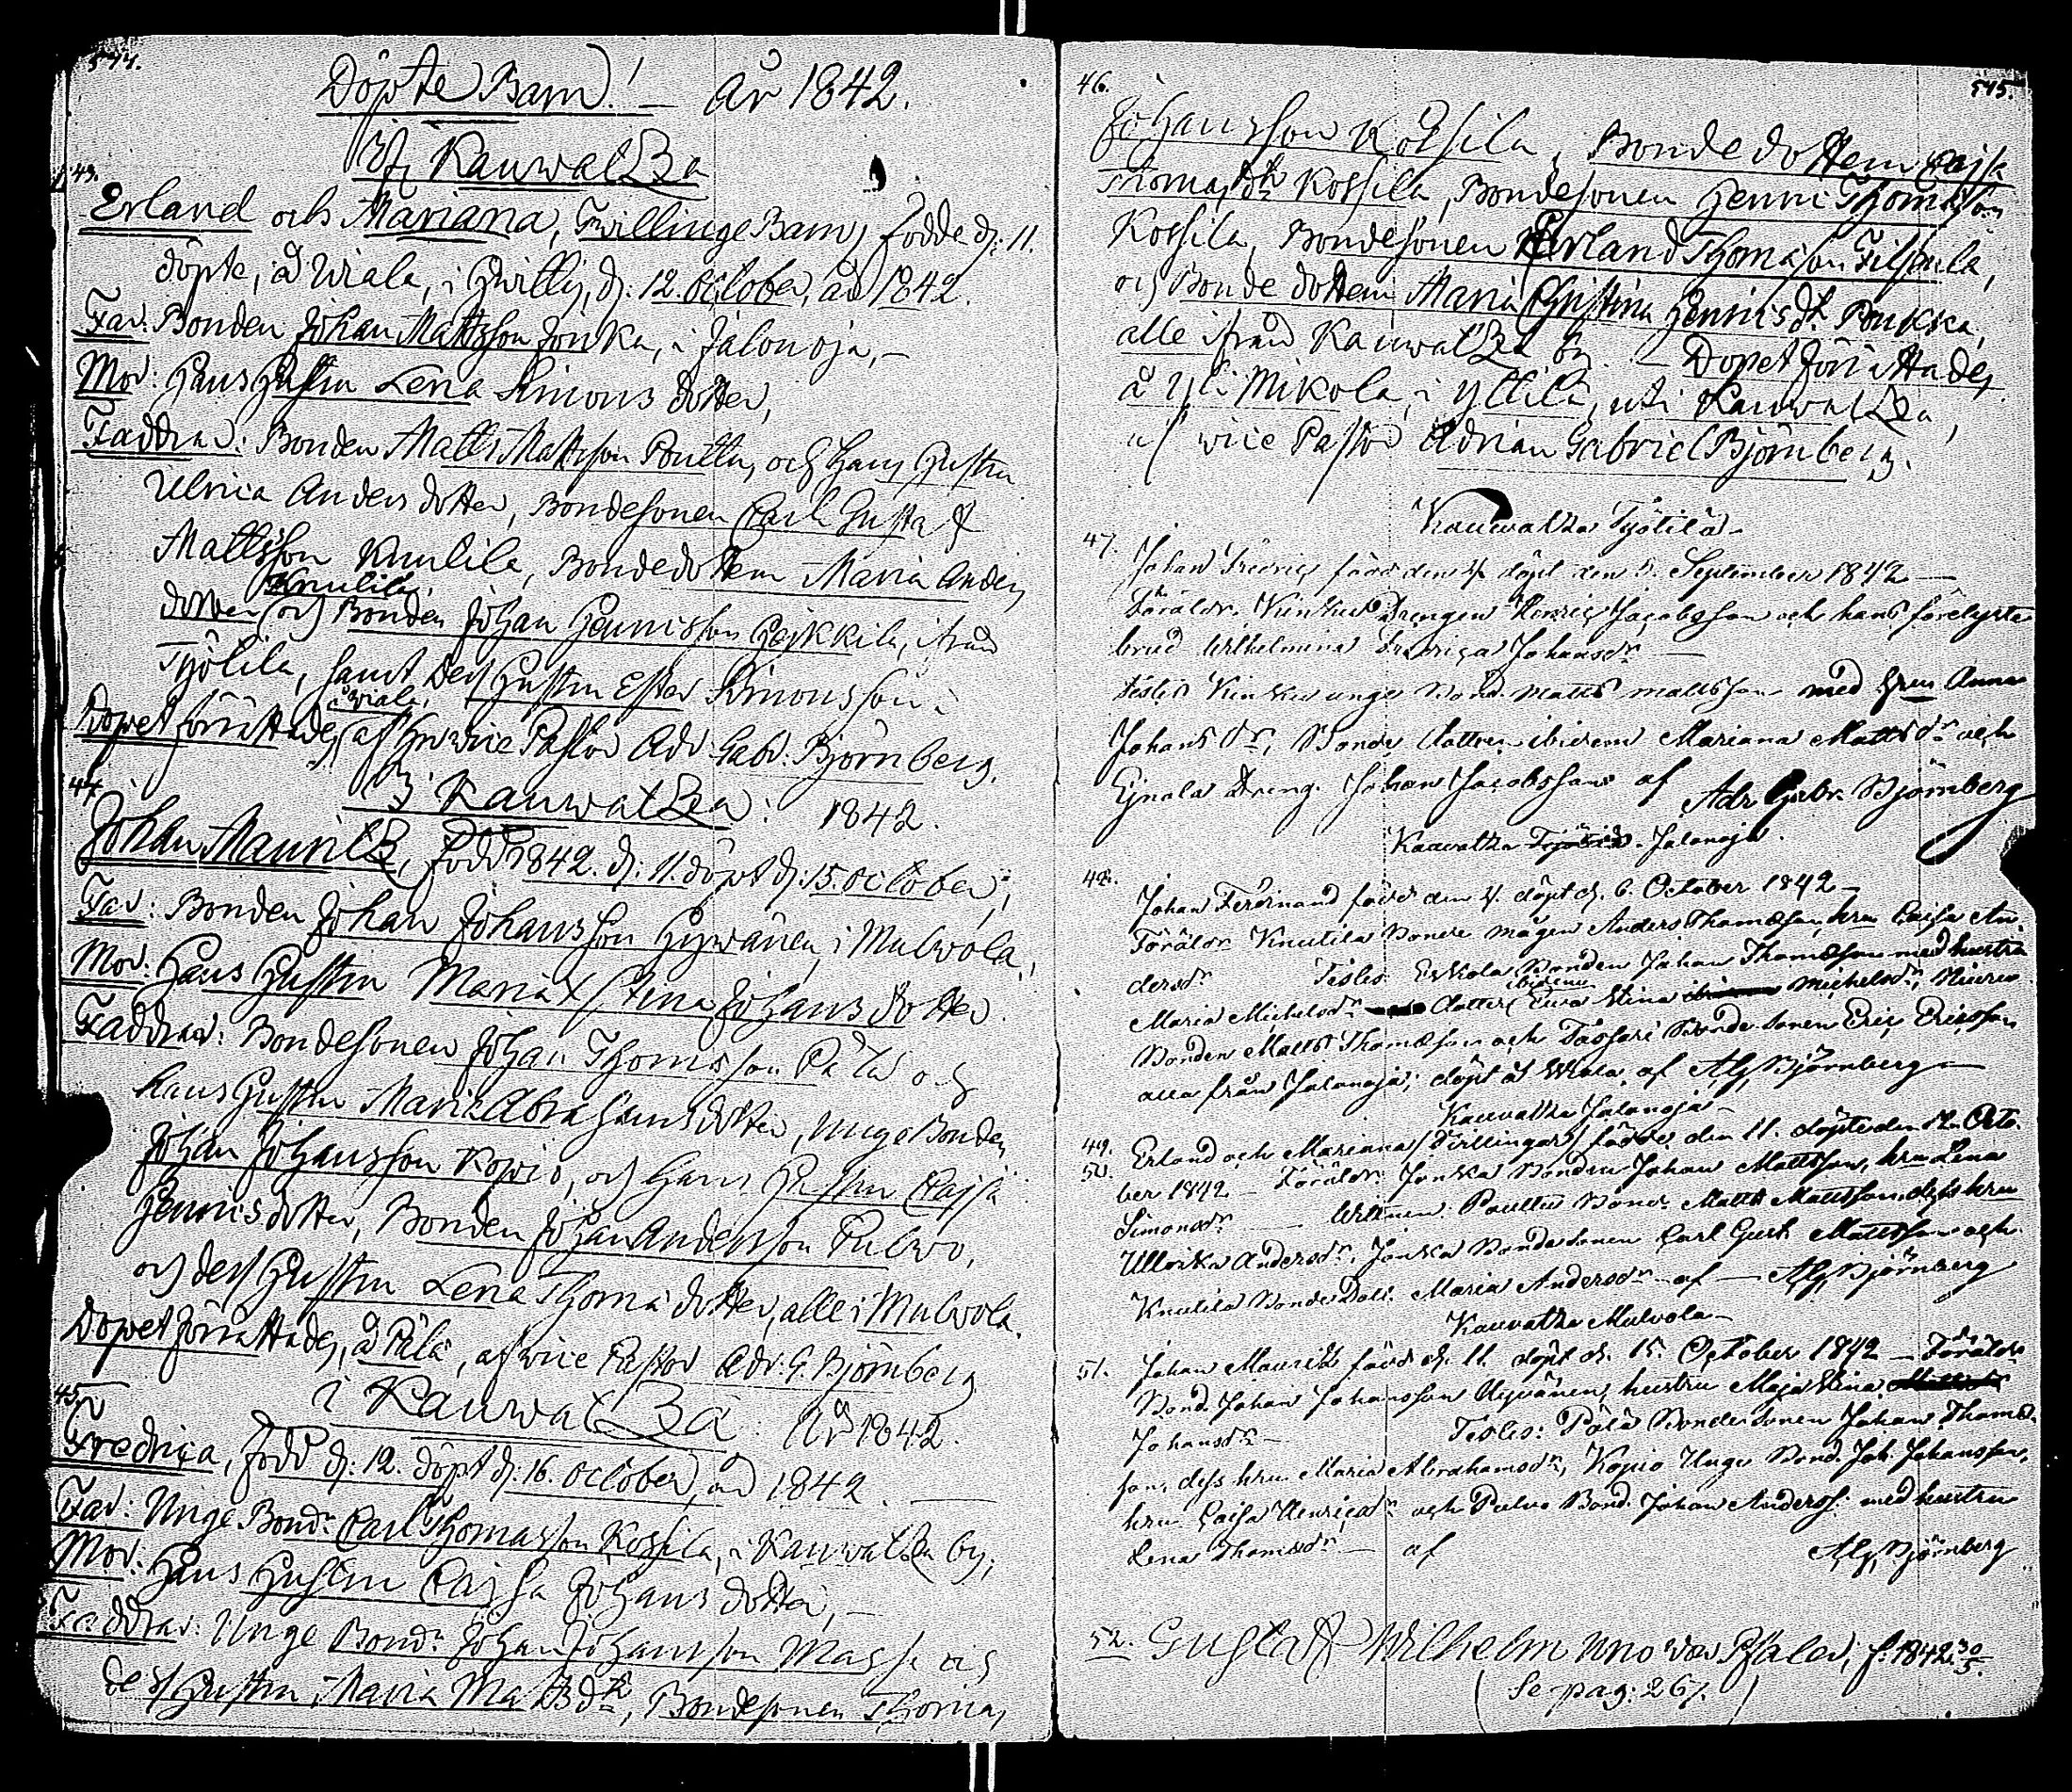 544.
Döpte Barn! — År 1842.
Kauwatza
43.
Erland och Mariana, Twillinge Barn, födde d: 11.
döpte, å Wiala, i d: 12. October, år 1842.
Far: Bonden Johan Mattsson Jonka, i Jalonoja, —
Mor: Hans Hustru Lena Simons dotter,
Faddrar: Bonden Matts Mattsson Poultu, och hans Hustru
Ulrica Anders dotter, Bondesonen Carl Gustaf
Mattsson Knulila, Bondedottern Maria Anders
Knulila,
dotter och Bonden Johan Hennisson Hejkkilä, ifrån
Työlilä, samt Dess Hustru Ester Simonsson
å Wiala,
Dopet förrättades af Hr vice Pastor Adr. Gabr: Björnberg.
44.
i Kauwatza: 1842.
Johan Mauritz, född 1842. d: 11. döpt d: 15. October,
Far: Bonden Johan Johansson Hywänen, i Mulwola,
Mor: Hans Hustru Maria Stina Johans dotter.
Faddrar: Bondesonen Johan Thomasson Pälä och
hans Hustru Maria Abrahams dotter, Unge Bonden
Johan Johansson Kopio, och Hans Hustru Cajsa
Hennis dotter, Bonden Johan Andersson Pulwo,
och dess Hustru Lena Thoma dotter, alle i Mulwola.
Dopet förrättades, å Pälä, af vice Pastor Adr. G. Björnberg
45.
i Kauwatza År 1842.
Fredrica, född d: 12. döpt d: 16. October, år 1842. —
Far: Unge Bondn Carl Thomasson Kossila, i Kauwatza by,
Mor: Hans Hustru Cajsa Johans dotter, —
Faddrar: Unge Bondn Johan Johansson Massa och
dess Hustru Maria Matts dr, Bondesonen Thomas
545.
46.
Johansson Kossila, Bondedottern Cajsa
Thomas dr Kossila, Bondesonen Henric Thomasson
Kossila, Bondesonen Erland Thomasson Filppula,
och Bondedottern Maria Christina Hennis dr Poukka,
alle ifrån Kauwatza by. — Dopet förrättades
å Yli Mikola, i Yttilä, uti Kauwatza,
af vice Pastor Adrian Gabriel Björnberg.
Kauwatza Työtilä —
47.
Johan Fredric född den 4. döpt den 5. September 1842 —
Föräldr. Drengen Henric Jacobsson och hans förelysta
brud Wilhelmina Fredrica Johansdr —
Testes unge Bond. Matts Mattsson med hru Anna
Johans dr, Bonde dottren ibidem Mariana Matts dr och
Ejnola Dreng. Johan Jacobsson af
Adr Gabr. Björnberg
Kauvatza Jalonoja.
48.
Johan Ferdinand född den 4. döpt d. 6. October 1842 —
Föräldr Knutila Bonde mågen Anders Thomasson, hru Caisa An-
dersdr Testes Erkola Bonden Johan Thomasson med hustru
ibidem
Maria Michelsdr dotter Ewa Stina Michelsdr,
Bonden Matts Thomasson och Tassari Bonde sonen Eric Ericsson
alla från Jalonoja; döpt å Wiala af AG Björnberg —
Kauvatza Jalonoja —
49.
50.
Erland och Mariana (Tvillingar) födde den 11. döpte den 12. Octo-
ber 1842 — Föräldr. Jonka Bonden Johan Mattsson, hru Lena
Simonsdr — Wittnen: Poultu Bond. Matts Mattsson, dess hru
Ullrika Andersdr, Jonka Bondesonen Carl Gust. Mattsson och
Knutila Bonde Dott. Maria Andersdr — af — AG Björnberg
Kauvatza Mulvola —
51.
Johan Mauritz född d. 11. döpt d. 15. October 1842 — Föräldr
Bond. Johan Johansson Hyvänen, hustru Maja Stina
Johansdr — Testes: Pälä Bondesonen Johan Thomas-
son, dess hru Maria Abrahamsdr, Kopio Unge Bond. Joh. Johansson,
hru Caisa Henricsdr och Pulvo Bond. Johan Anderss. med hustru
Lena Thomasdr — af AG Björnberg
52. Gustaf Wilhelm Uno von Pfaler, f. 1842 30/5.
(Se pag: 267.)